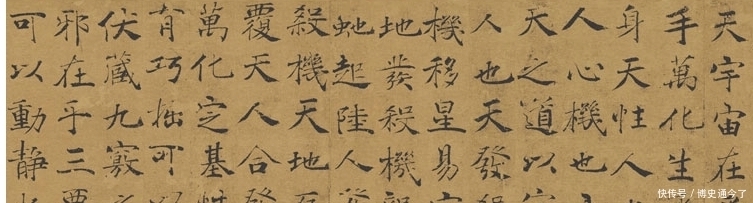 天宇宙在
手萬化生
身天性人
人心機也
天之道以
人也天發
機移星易
地發殺機
虵起陸人
殺機天地
覆天人合
萬化定基
有巧拙可
伏藏九竅
邪在乎三
可以動靜
快传号 / 博史通今了